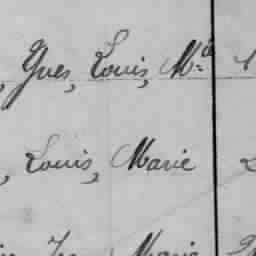 , Yves, Louis, M=ie
, Louis, Marie
Marie